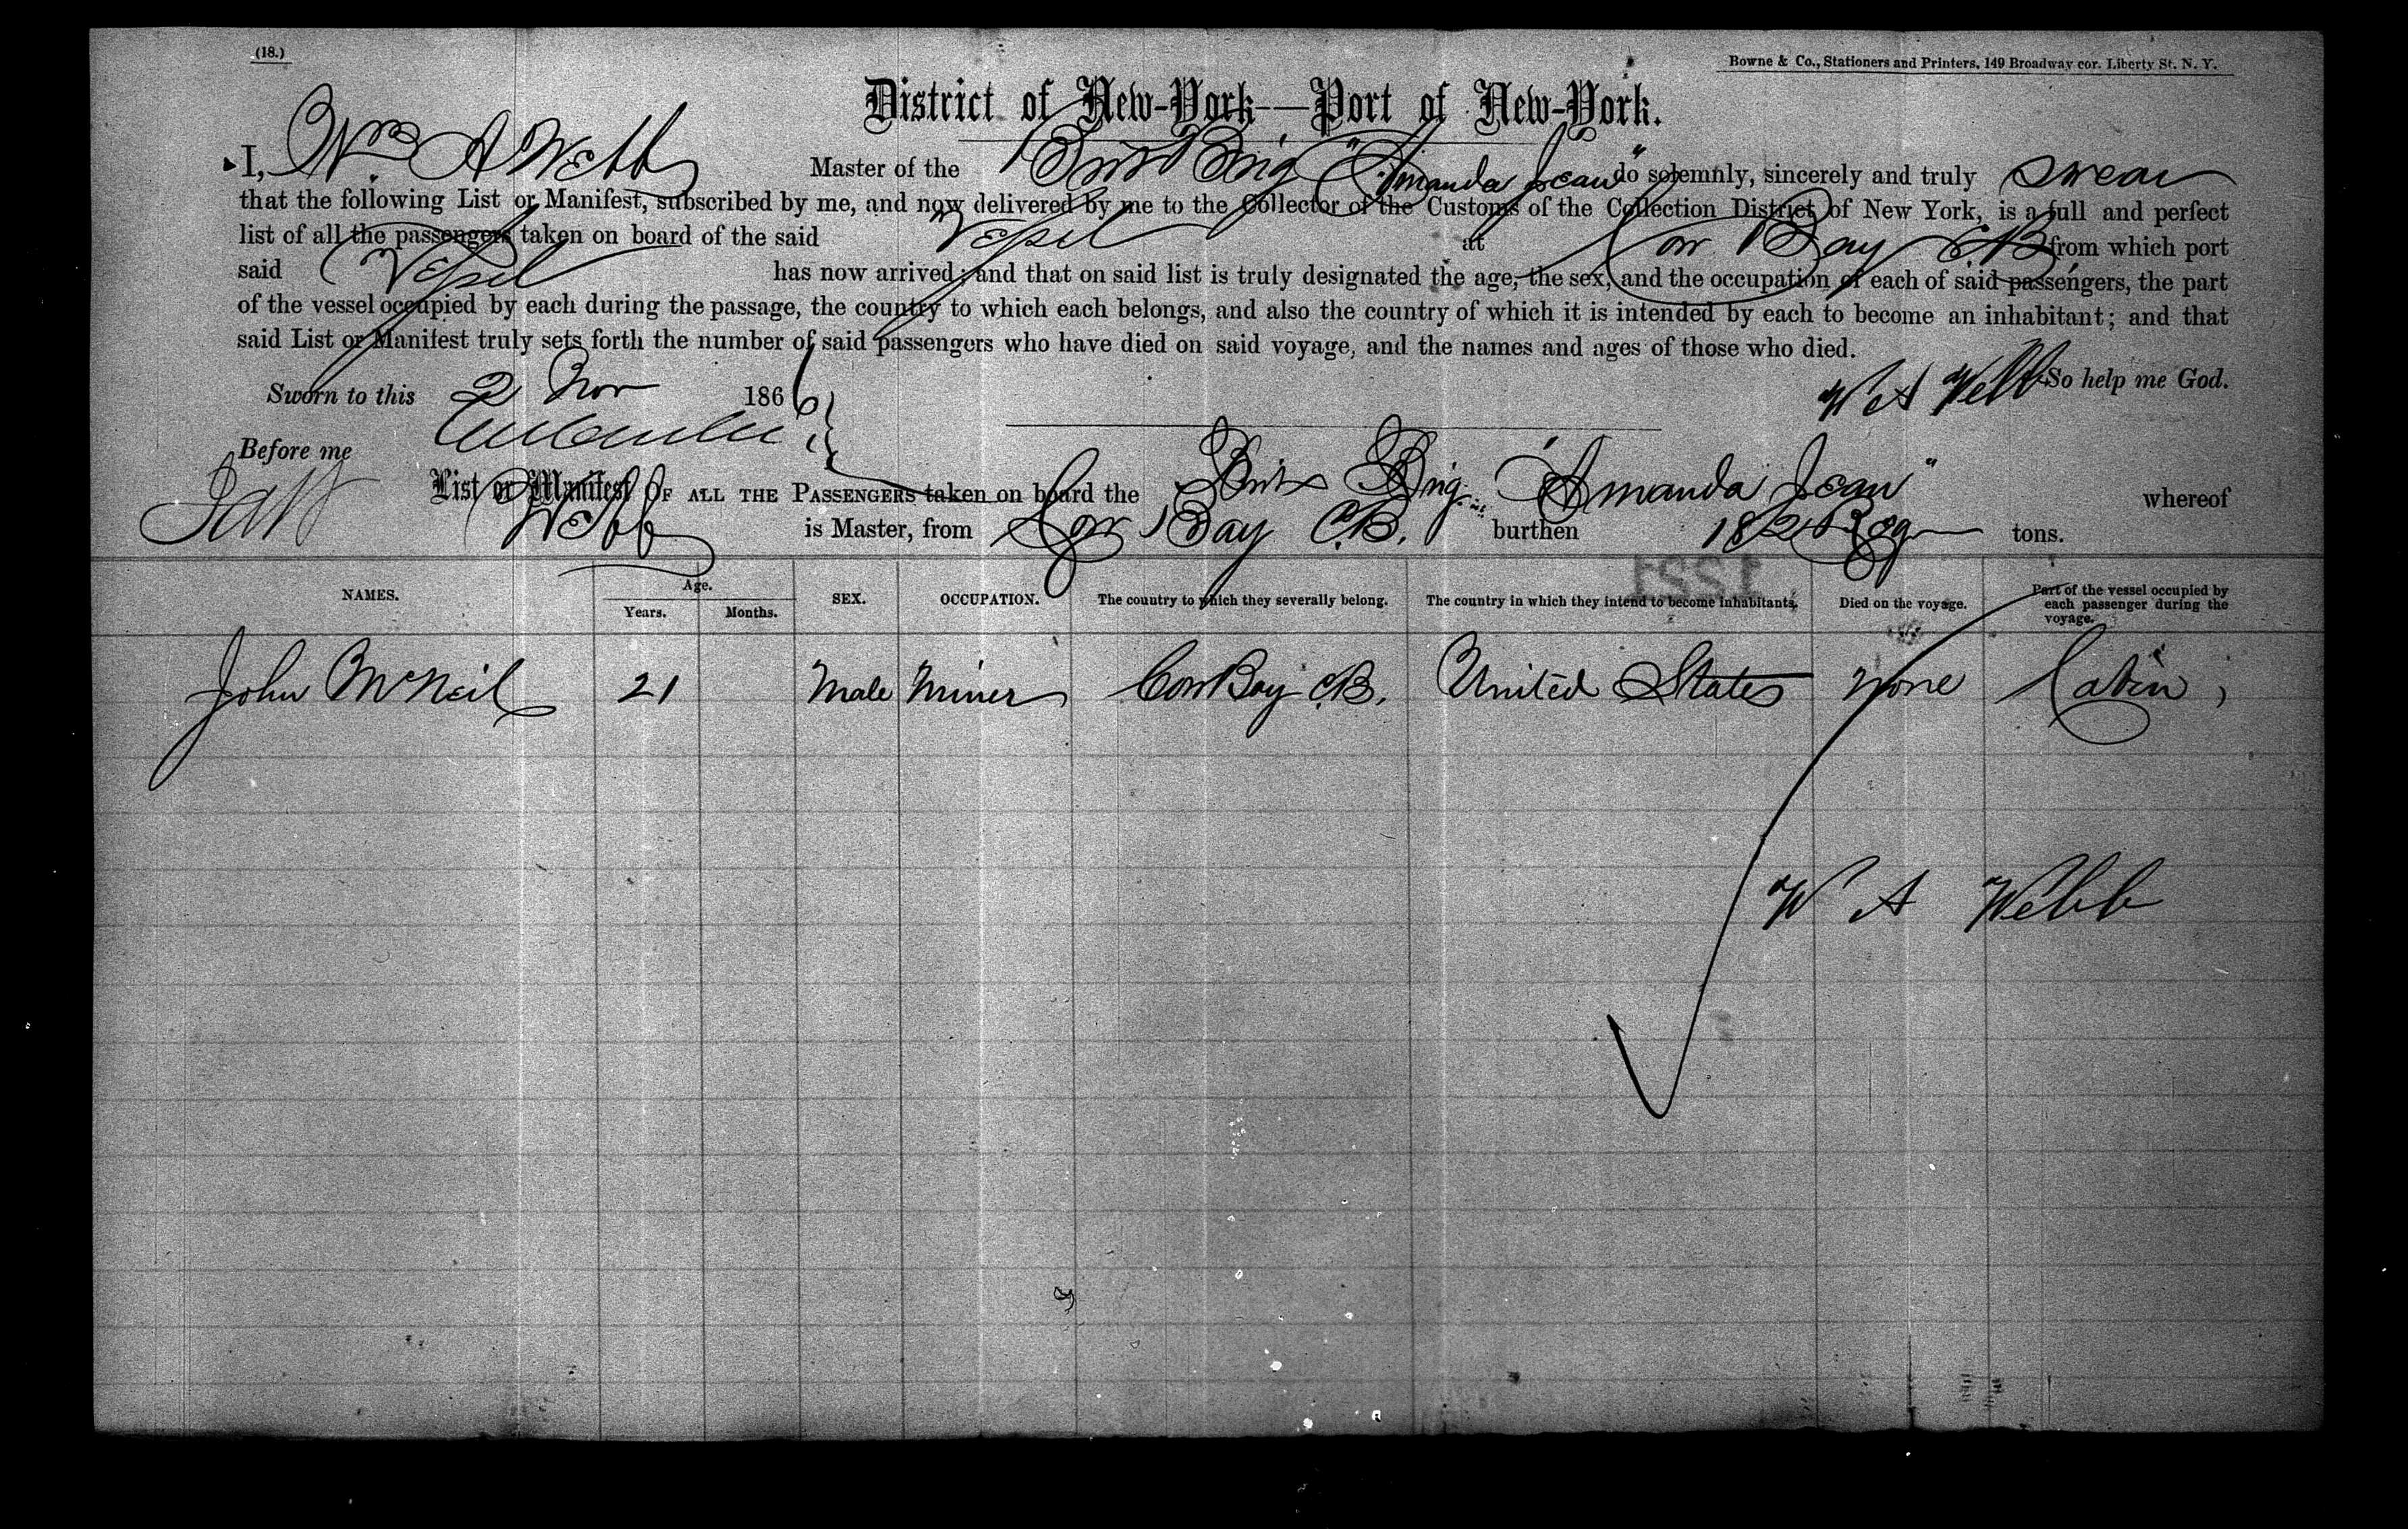 (18.)
Bowne & Co., Stationers and Printers, 149 Broadway cor. Liberty St. N. Y.
District of New-York—Port of New-York.
I, Wm A Webb Master of the Brit Brig "Amanda Jean" do solemnly, sincerely and truly swear
that the following List or Manifest, subscribed by me, and now delivered by me to the Collector of the Customs of the Collection District of New York, is a full and perfect
list of all the passengers taken on board of the said Vessel at Cow Bay C.B. from which port
said Vessel has now arrived; and that on said list is truly designated the age, the sex, and the occupation of each of said passengers, the part
of the vessel occupied by each during the passage, the country to which each belongs, and also the country of which it is intended by each to become an inhabitant; and that
said List or Manifest truly sets forth the number of said passengers who have died on said voyage, and the names and ages of those who died.
W A Webb So help me God.
Sworn to this 2 Nov 1866
Before me
List or Manifest OF ALL THE PASSENGERS taken on board the Brit Brig "Amanda Jean" whereof
Webb is Master, from Cow Bay C.B. burthen 182 Reg tons.
1221
NAMES. Age. Years. Months. SEX. OCCUPATION. The country to which they severally belong. The country in which they intend to become inhabitants. Died on the voyage. Part of the vessel occupied by each passenger during the voyage.
John McNeil 21 Male Miner Cow Bay C.B. United States None Cabin,
W A Webb